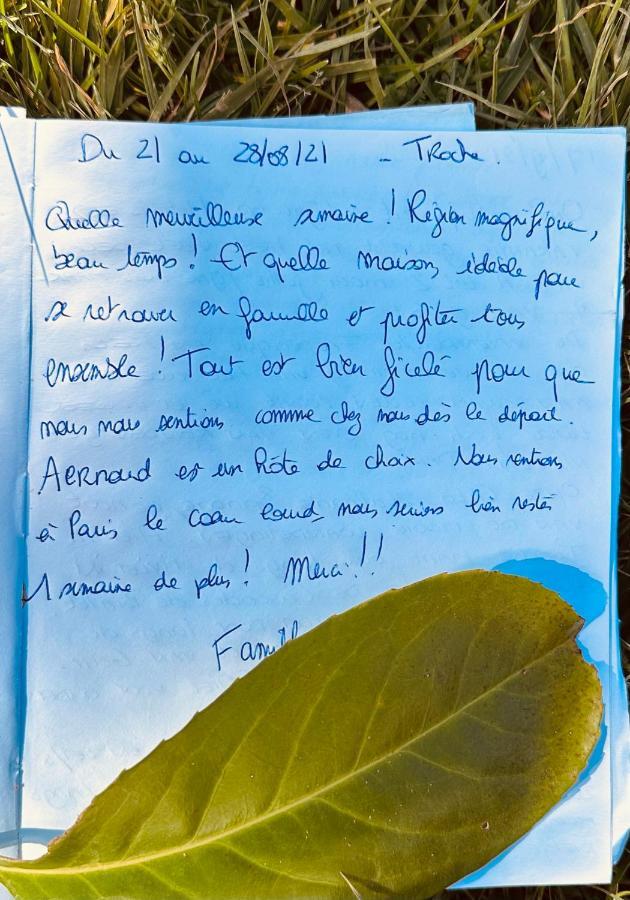 Du 21 au 28/08/21 - Troche.
Quelle merveilleuse semaine ! Région magnifique,
beau temps ! Et quelle maison, idéale pour
se retrouver en famille et profiter tous
ensemble ! Tout est bien ficelé pour que
nous nous sentions comme chez nous dès le départ.
Aernoud est un hôte de choix. Nous rentrons
à Paris le coeur lourd, nous serions bien restés
1 semaine de plus ! Merci !!